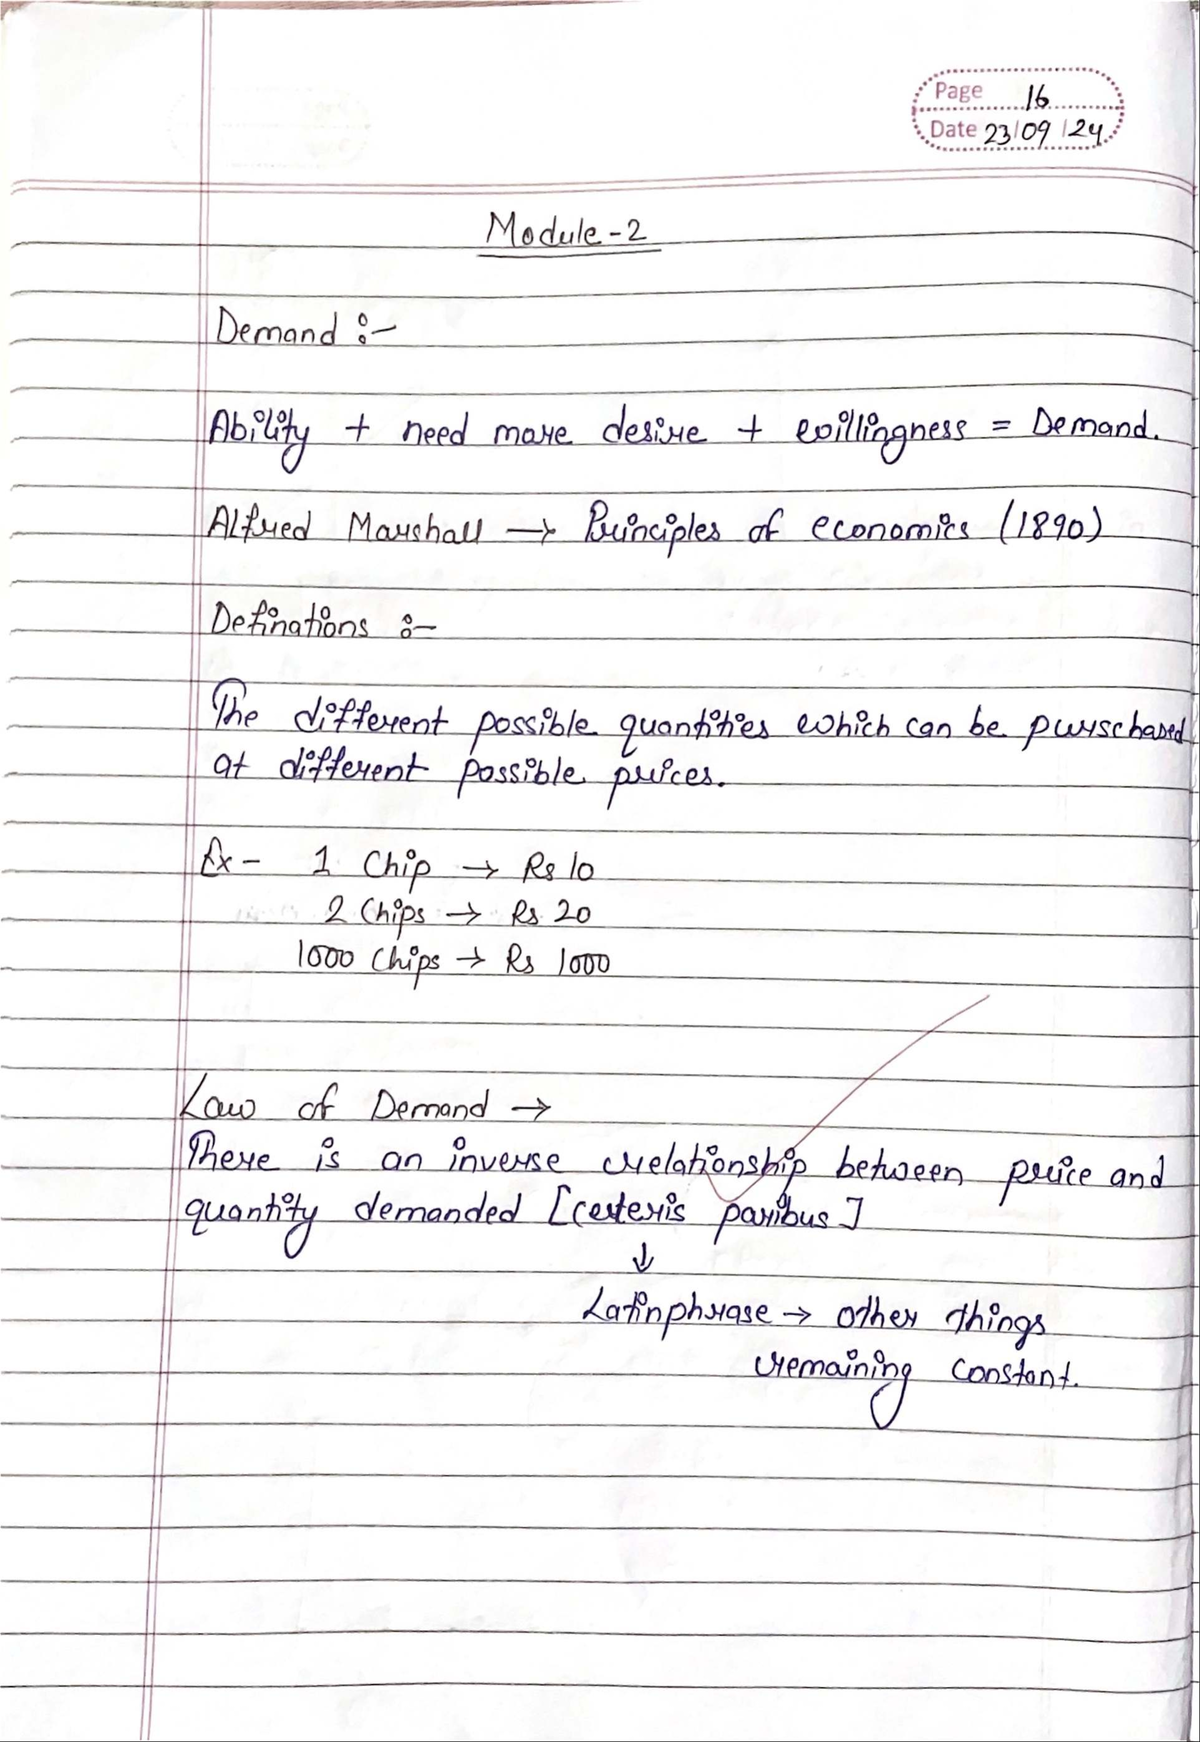 Page 16
Date 23/09/24
Module-2
Demand :-
Ability + need more desire + willingness = Demand.
Alfred Marshall → Principles of economics (1890)
Definations :-
The different possible quantities which can be purschased
at different possible prices.
Ex- 1 Chip → Rs 10
2 Chips → Rs 20
1000 Chips → Rs 1000
Law of Demand →
There is an inverse relationship between price and
quantity demanded [ceteris paribus]
↓
Latin phrase → other things
remaining constant.